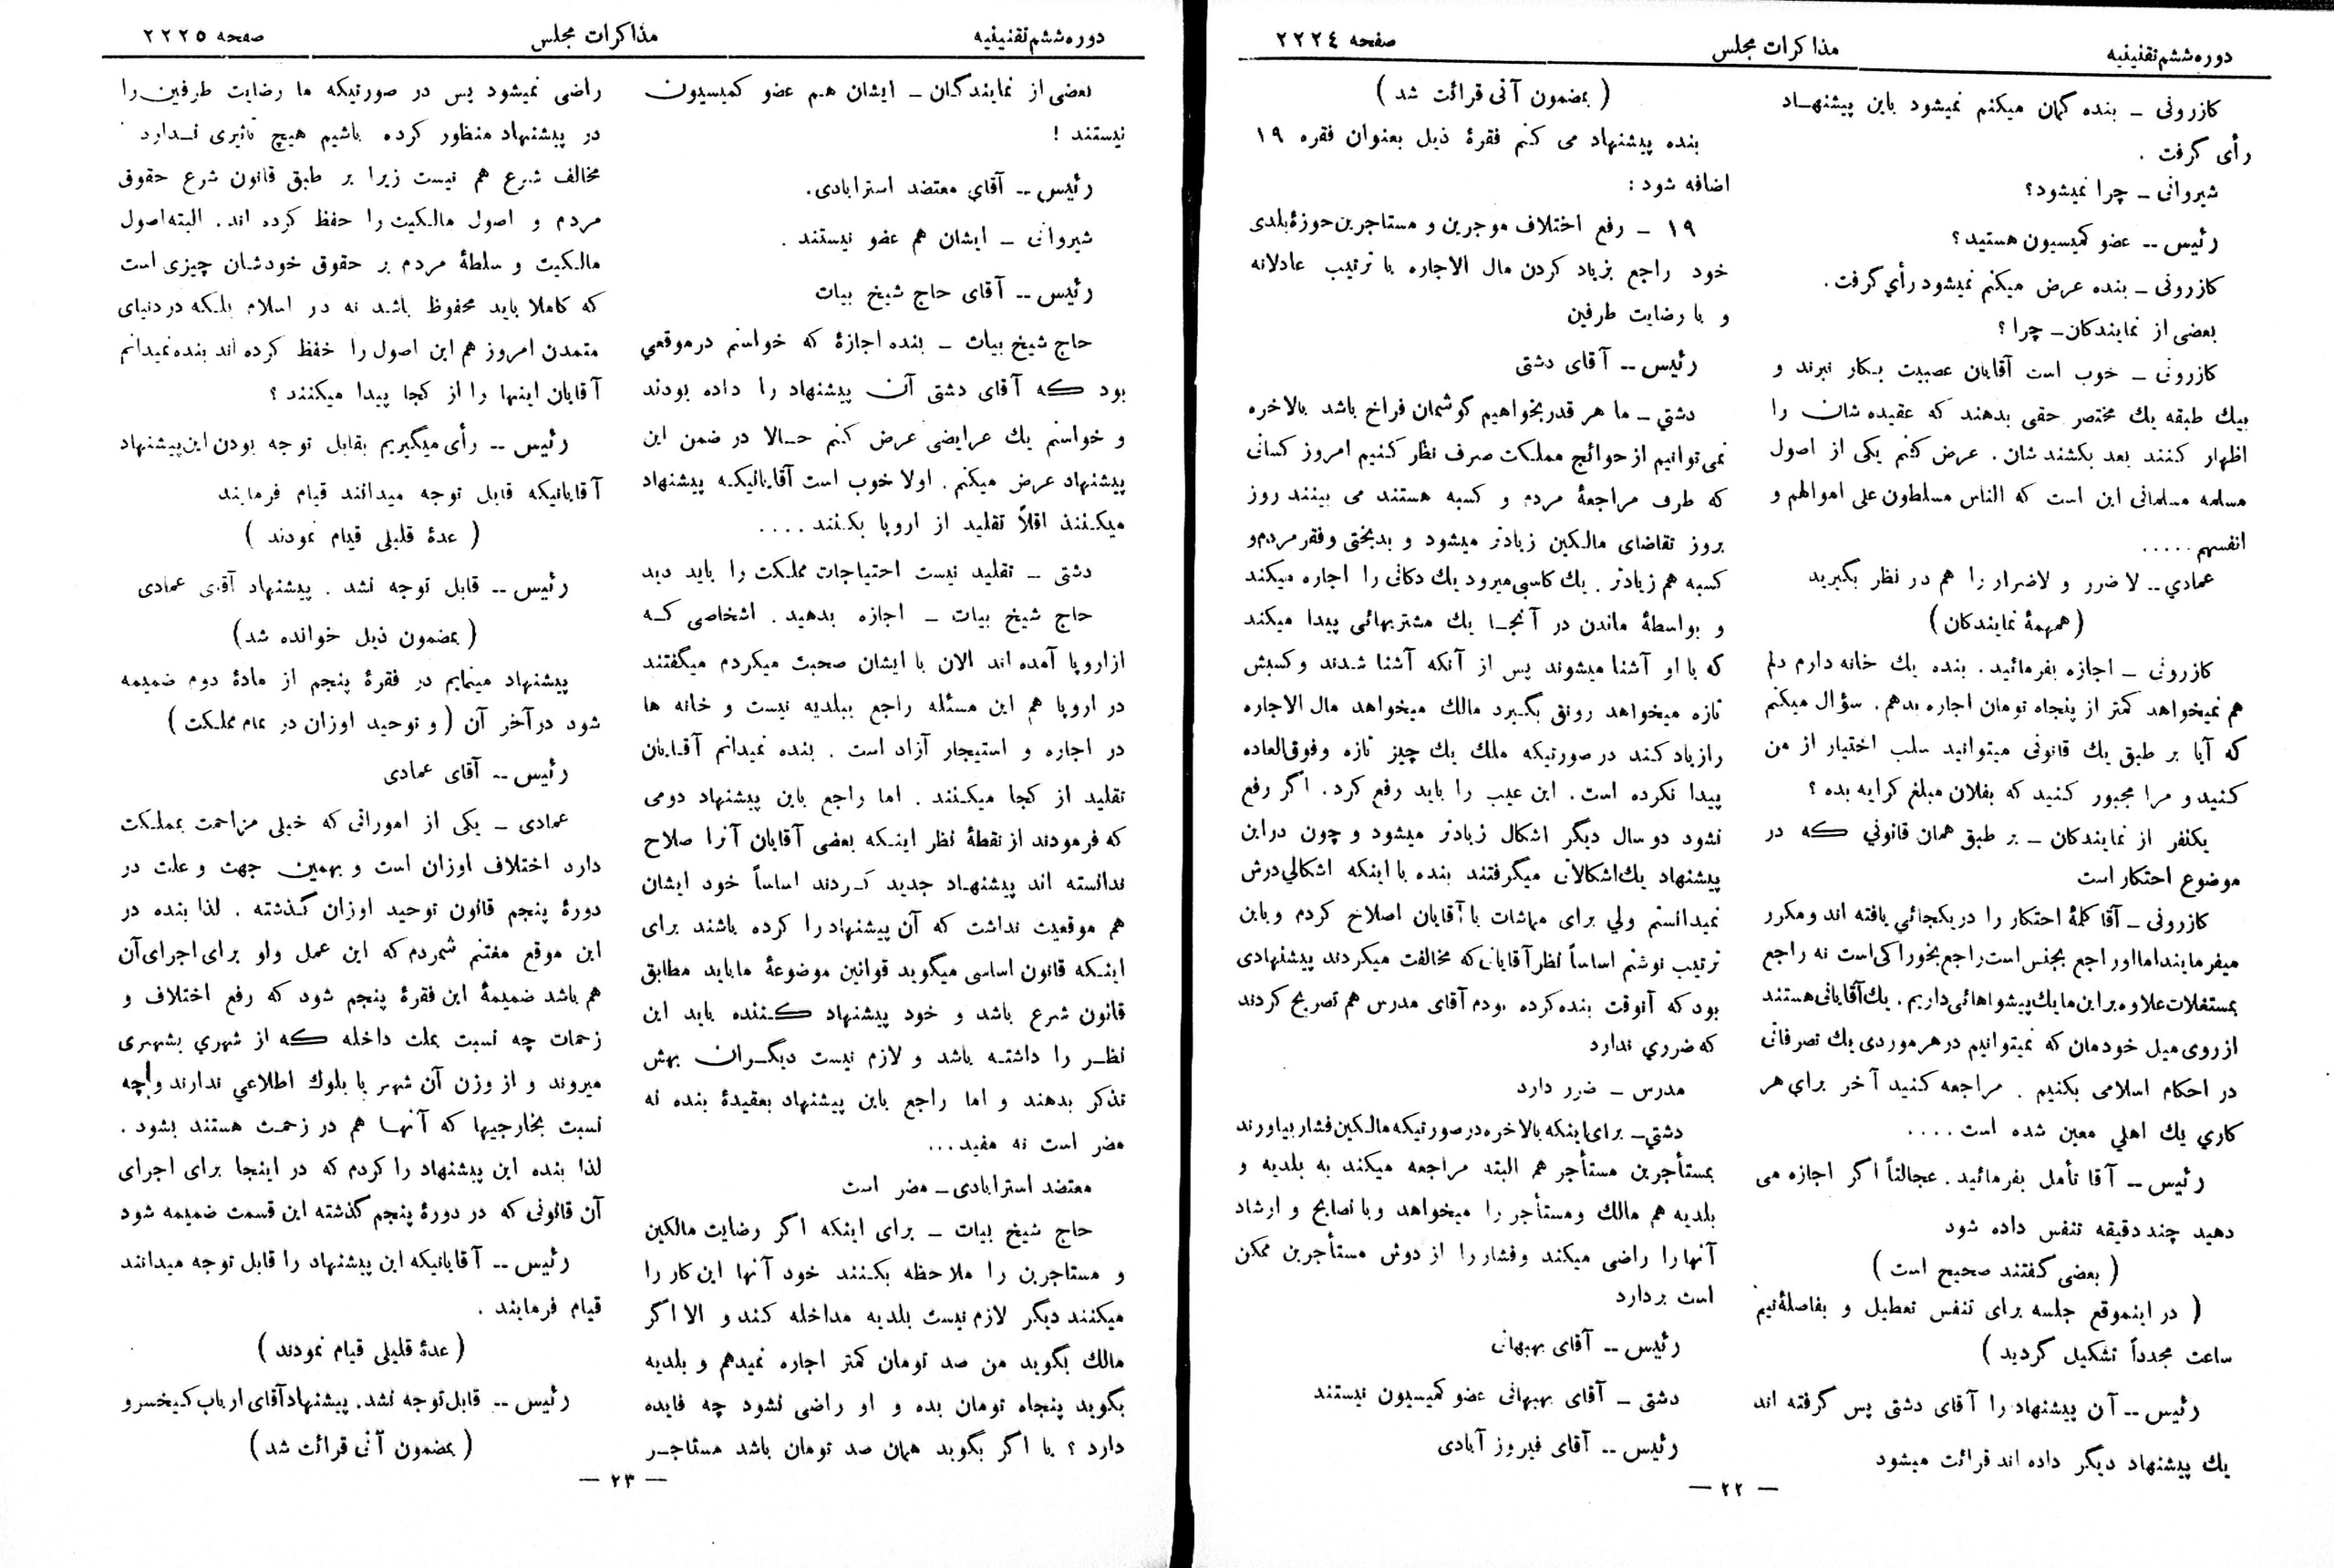 دوره ششم تقنینیه
مذاکرات مجلس
صفحه ۲۲۲٤
کازرونی ــ بنده گمان میکنم نمیشود باین پیشنهاد
رأی گرفت .
شیروانی ــ چرا نمیشود؟
رئیس ــ عضو کمیسیون هستید؟
کازرونی ــ بنده عرض میکنم نمیشود رأی گرفت .
بعضی از نمایندکان ــ چرا ؟
کازرونی ــ خوب است آقایان عصبیت بکار نبرند و
بیك طبقه یك مختصر حقی بدهند که عقیده شان را
اظهار کنند بعد بکشند شان . عرض کنم یکی از اصول
مسلمه مسلمانی این است که الناس مسلطون علی اموالهم و
انفسهم .....
عمادي ــ لا ضرر و لاضرار را هم در نظر بگیرید
(همهمهٔ نمایندکان)
کازرونی ــ اجازه بفرمائید . بنده یك خانه دارم دلم
هم نمیخواهد کمتر از پنجاه تومان اجاره بدهم . سؤال میکنم
که آیا بر طبق یك قانونی میتوانید سلب اختیار از من
کنید و مرا مجبور کنید که بفلان مبلغ کرایه بده ؟
یکنفر از نمایندکان ــ بر طبق همان قانوني که در
موضوع احتکار است
کازرونی ــ آقا کلمهٔ احتکار را در یکجائي یافته اند و مکرر
میفرمایند اما او راجع بجنس است راجع بخوراکی است نه راجع
بمستغلات علاوه بر این ما یك پیشواهائی داریم . یك آقایانی هستند
از روی میل خودمان که نمیتوانیم در هر موردی یك تصرفاتی
در احکام اسلامی بکنیم . مراجعه کنید آخر برای هر
کاري یك اهلي معین شده است ....
رئیس ــ آقا تأمل بفرمائید . عجالتاً اگر اجازه می
دهید چند دقیقه تنفس داده شود
( بعضی گفتند صحیح است )
( در اینموقع جلسه برای تنفس تعطیل و بفاصلهٔ نیم
ساعت مجدداً تشکیل گردید )
رئیس ــ آن پیشنهاد را آقای دشتی پس گرفته اند
یك پیشنهاد دیگر داده اند قرائت میشود
( بمضمون آتی قرائت شد )
بنده پیشنهاد می کنم فقرهٔ ذیل بعنوان فقره ۱۹
اضافه شود :
۱۹ ــ رفع اختلاف موجرین و مستاجرین حوزهٔ بلدی
خود راجع بزیاد کردن مال الاجاره با ترتیب عادلانه
و با رضایت طرفین
رئیس ــ آقای دشتی
دشتي ــ ما هر قدر بخواهیم گوشمان فراخ باشد بالاخره
نمی توانیم از حوائج مملکت صرف نظر کنیم امروز کسانی
که طرف مراجعهٔ مردم و کسبه هستند می بینند روز
بروز تقاضای مالکین زیادتر میشود و بدبختی و فقر مردم و
کسبه هم زیادتر . یك کاسبی میرود یك دکانی را اجاره میکند
و بواسطهٔ ماندن در آنجا یك مشتریهائی پیدا میکند
که با او آشنا میشوند پس از آنکه آشنا شدند و کسبش
تازه میخواهد رونق بگیرد مالك میخواهد مال الاجاره
را زیاد کند در صورتیکه ملك یك چیز تازه و فوق العاده
پیدا نکرده است . این عیب را باید رفع کرد . اگر رفع
نشود دو سال دیگر اشکال زیادتر میشود و چون در این
پیشنهاد یك اشکالاتی میگرفتند بنده با اینکه اشکالي درش
نمیدانستم ولي برای مماشات با آقایان اصلاح کردم و باین
ترتیب نوشتم اساساً نظر آقایانی که مخالفت میکردند پیشنهادی
بود که آنوقت بنده کرده بودم آقای مدرس هم تصریح کردند
که ضرري ندارد
مدرس ــ ضرر دارد
دشتي ــ برای اینکه بالاخره در صورتیکه مالکین فشار بیاورند
بمستأجرین مستأجر هم البته مراجعه میکند به بلدیه و
بلدیه هم مالك و مستأجر را میخواهد و با نصایح و ارشاد
آنها را راضی میکند و فشار را از دوش مستأجرین ممکن
است بردارد
رئیس ــ آقای بهبهانی
دشتی ــ آقای بهبهانی عضو کمیسیون نیستند
رئیس ــ آقای فیروز آبادی
ــ ۲۲ ــ
دوره ششم تقنینیه
مذاکرات مجلس
صفحه ۲۲۲٥
بعضی از نمایندگان ــ ایشان هم عضو کمیسیون
نیستند !
رئیس ــ آقاي معتضد استرابادی .
شیروانی ــ ایشان هم عضو نیستند .
رئیس ــ آقای حاج شیخ بیات
حاج شیخ بیات ــ بنده اجازهٔ که خواستم در موقعي
بود که آقای دشتی آن پیشنهاد را داده بودند
و خواستم یك عرایضی عرض کنم حالا در ضمن این
پیشنهاد عرض میکنم . اولا خوب است آقایانیکه پیشنهاد
میکنند اقلاً تقلید از اروپا بکنند ....
دشتی ــ تقلید نیست احتیاجات مملکت را باید دید
حاج شیخ بیات ــ اجازه بدهید . اشخاصی که
از اروپا آمده اند الان با ایشان صحبت میکردم میگفتند
در اروپا هم این مسئله راجع ببلدیه نیست و خانه ها
در اجاره و استیجار آزاد است . بنده نمیدانم آقایان
تقلید از کجا میکنند . اما راجع باین پیشنهاد دومی
که فرمودند از نقطهٔ نظر اینکه بعضی آقایان آنرا صلاح
ندانسته اند پیشنهاد جدید کردند اساساً خود ایشان
هم موقعیت نداشت که آن پیشنهاد را کرده باشند برای
اینکه قانون اساسی میگوید قوانین موضوعهٔ ما باید مطابق
قانون شرع باشد و خود پیشنهاد کننده باید این
نظر را داشته باشد و لازم نیست دیگران بهش
تذکر بدهند و اما راجع باین پیشنهاد بعقیدهٔ بنده نه
مضر است نه مفید ...
معتضد استرابادی ــ مضر است
حاج شیخ بیات ــ برای اینکه اگر رضایت مالکین
و مستاجرین را ملاحظه بکنند خود آنها این کار را
میکنند دیگر لازم نیست بلدیه مداخله کند و الا اگر
مالك بگوید من صد تومان کمتر اجاره نمیدهم و بلدیه
بگوید پنجاه تومان بده و او راضی نشود چه فایده
دارد ؟ یا اگر بگوید همان صد تومان باشد مستاجر
راضی نمیشود پس در صورتیکه ما رضایت طرفین را
در پیشنهاد منظور کرده باشیم هیچ تاثیری ندارد
مخالف شرع هم نیست زیرا بر طبق قانون شرع حقوق
مردم و اصول مالکیت را حفظ کرده اند . البته اصول
مالکیت و سلطهٔ مردم بر حقوق خودشان چیزی است
که کاملا باید محفوظ باشد نه در اسلام بلکه در دنیای
متمدن امروز هم این اصول را حفظ کرده اند بنده نمیدانم
آقایان اینها را از کجا پیدا میکنند ؟
رئیس ــ رأی میگیریم بقابل توجه بودن این پیشنهاد
آقایانیکه قابل توجه میدانند قیام فرمایند
( عدهٔ قلیلی قیام نمودند )
رئیس ــ قابل توجه نشد . پیشنهاد آقای عمادی
(بمضمون ذیل خوانده شد)
پیشنهاد مینمایم در فقرهٔ پنجم از مادهٔ دوم ضمیمه
شود در آخر آن ( و توحید اوزان در تمام مملکت )
رئیس ــ آقای عمادی
عمادی ــ یکی از اموراتی که خیلی مزاحمت بمملکت
دارد اختلاف اوزان است و بهمین جهت و علت در
دورهٔ پنجم قانون توحید اوزان گذشته . لذا بنده در
این موقع مغتنم شمردم که این عمل ولو برای اجرای آن
هم باشد ضمیمهٔ این فقرهٔ پنجم شود که رفع اختلاف و
زحمات چه نسبت بملت داخله که از شهري بشهری
میروند و از وزن آن شهر یا بلوك اطلاعي ندارند و چه
نسبت بخارجیها که آنها هم در زحمت هستند بشود .
لذا بنده این پیشنهاد را کردم که در اینجا برای اجرای
آن قانونی که در دورهٔ پنجم گذشته این قسمت ضمیمه شود
رئیس ــ آقایانیکه این پیشنهاد را قابل توجه میدانند
قیام فرمایند .
(عدهٔ قلیلی قیام نمودند)
رئیس ــ قابل توجه نشد . پیشنهاد آقای ارباب کیخسرو
( بمضمون آتی قرائت شد )
ــ ۲۳ ــ